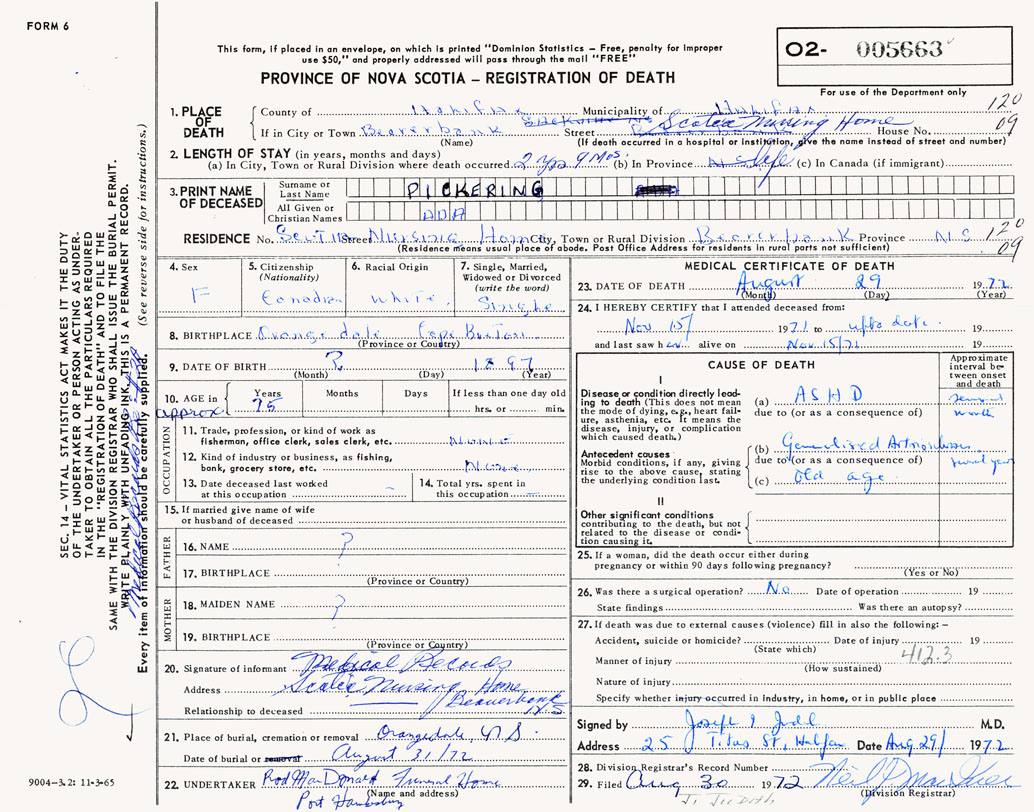 FORM 6
This form, if placed in an envelope, on which is printed "Dominion Statistics – Free, penalty for improper
use $50," and properly addressed will pass through the mail "FREE"
PROVINCE OF NOVA SCOTIA – REGISTRATION OF DEATH
O2- 005663
For use of the Department only
SEC. 14 – VITAL STATISTICS ACT MAKES IT THE DUTY
OF THE UNDERTAKER OR PERSON ACTING AS UNDER-
TAKER TO OBTAIN ALL THE PARTICULARS REQUIRED
IN THE "REGISTRATION OF DEATH" AND TO FILE THE
SAME WITH THE DIVISION REGISTRAR WHO SHALL ISSUE THE BURIAL PERMIT.
WRITE PLAINLY WITH UNFADING INK, THIS IS A PERMANENT RECORD.
Every item of information should be carefully supplied. (See reverse side for instructions.)
1. PLACE OF DEATH
County of Halifax Municipality of Halifax
120
09
If in City or Town Beaverbank Street Scotia Nursing Home House No.
(Name) (If death occurred in a hospital or institution, give the name instead of street and number)
2. LENGTH OF STAY (in years, months and days)
(a) In City, Town or Rural Division where death occurred 2 yrs 9 mos. (b) In Province NS life (c) In Canada (if immigrant)
3. PRINT NAME OF DECEASED
Surname or Last Name PICKERING
All Given or Christian Names ADA
RESIDENCE No. Scotia Street Nursing Home City, Town or Rural Division Beaverbank Province NS 120
09
(Residence means usual place of abode. Post Office Address for residents in rural parts not sufficient)
4. Sex F
5. Citizenship (Nationality) Canadian
6. Racial Origin White
7. Single, Married, Widowed or Divorced (write the word) Single
8. BIRTHPLACE Orangedale Cape Breton
(Province or Country)
9. DATE OF BIRTH ? 1897
(Month) (Day) (Year)
10. AGE in approx Years 75 Months Days If less than one day old
hrs. or min.
OCCUPATION
11. Trade, profession, or kind of work as
fisherman, office clerk, sales clerk, etc. None
12. Kind of industry or business, as fishing,
bank, grocery store, etc. None
13. Date deceased last worked
at this occupation –
14. Total yrs. spent in
this occupation –
15. If married give name of wife
or husband of deceased
FATHER
16. NAME ?
17. BIRTHPLACE
(Province or Country)
MOTHER
18. MAIDEN NAME ?
19. BIRTHPLACE
(Province or Country)
20. Signature of informant Medical Records
Address Scotia Nursing Home
Beaverbank
Relationship to deceased N.S.
21. Place of burial, cremation or removal Orangedale, N S.
Date of burial or removal August 31/72
22. UNDERTAKER Rod MacDonald Funeral Home
(Name and address)
Port Hawkesbury
9004-3.2: 11-3-65
MEDICAL CERTIFICATE OF DEATH
23. DATE OF DEATH August 29 1972
(Month) (Day) (Year)
24. I HEREBY CERTIFY that I attended deceased from:
Nov. 15/ 1971 to up to date 19
and last saw her alive on Nov. 15/71 19
CAUSE OF DEATH
Approximate interval between onset and death
I
Disease or condition directly leading to death (This does not mean the mode of dying, e.g., heart failure, asthenia, etc. It means the disease, injury, or complication which caused death.)
(a) ASHD
due to (or as a consequence of)
Antecedent causes:
Morbid conditions, if any, giving rise to the above cause, stating the underlying condition last.
(b) Generalized
due to (or as a consequence of)
(c) old age
II
Other significant conditions
contributing to the death, but not related to the disease or condition causing it.
25. If a woman, did the death occur either during
pregnancy or within 90 days following pregnancy?
(Yes or No)
26. Was there a surgical operation? No Date of operation 19
State findings Was there an autopsy?
27. If death was due to external causes (violence) fill in also the following: –
Accident, suicide or homicide? Date of injury 19
(State which) 412.3
Manner of injury
(How sustained)
Nature of injury
Specify whether injury occurred in industry, in home, or in public place
Signed by Joseph I Judd M.D.
Address 25 Titus St, Halifax Date Aug. 29/ 1972
28. Division Registrar's Record Number
29. Filed Aug 30 1972
(Division Registrar)